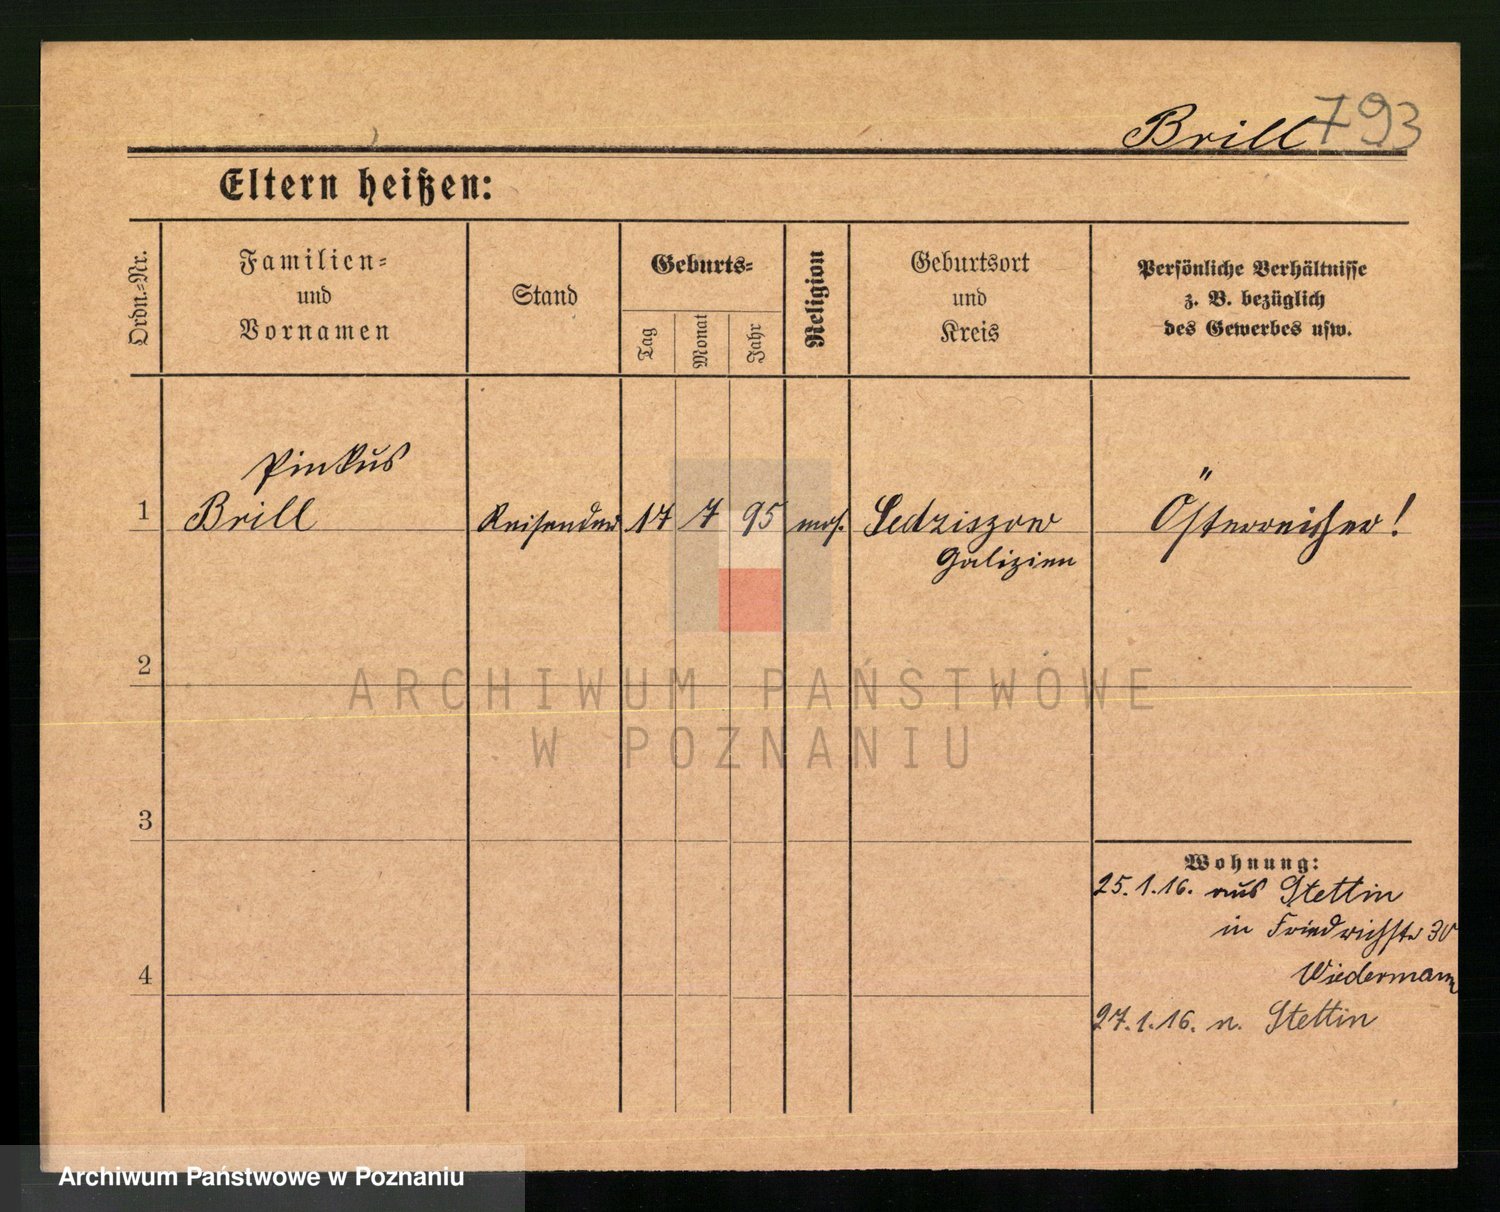 Brill 793
Eltern heißen:
Ordn.-Nr.
Familien-
und
Vornamen
Stand
Geburts-
Tag
Monat
Jahr
Religion
Geburtsort
und
Kreis
Persönliche Verhältnisse
z. B. bezüglich
des Gewerbes usw.
Pinkus
1 Brill Reisender 17 7 95 mos. Sedziszow Österreicher!
Galizien
2
ARCHIWUM PAŃSTWOWE
W POZNANIU
3
Wohnung:
25.1.16. aus Stettin
in Friedrichstr 30
Wiedermann
4
27.1.16. n. Stettin
Archiwum Państwowe w Poznaniu